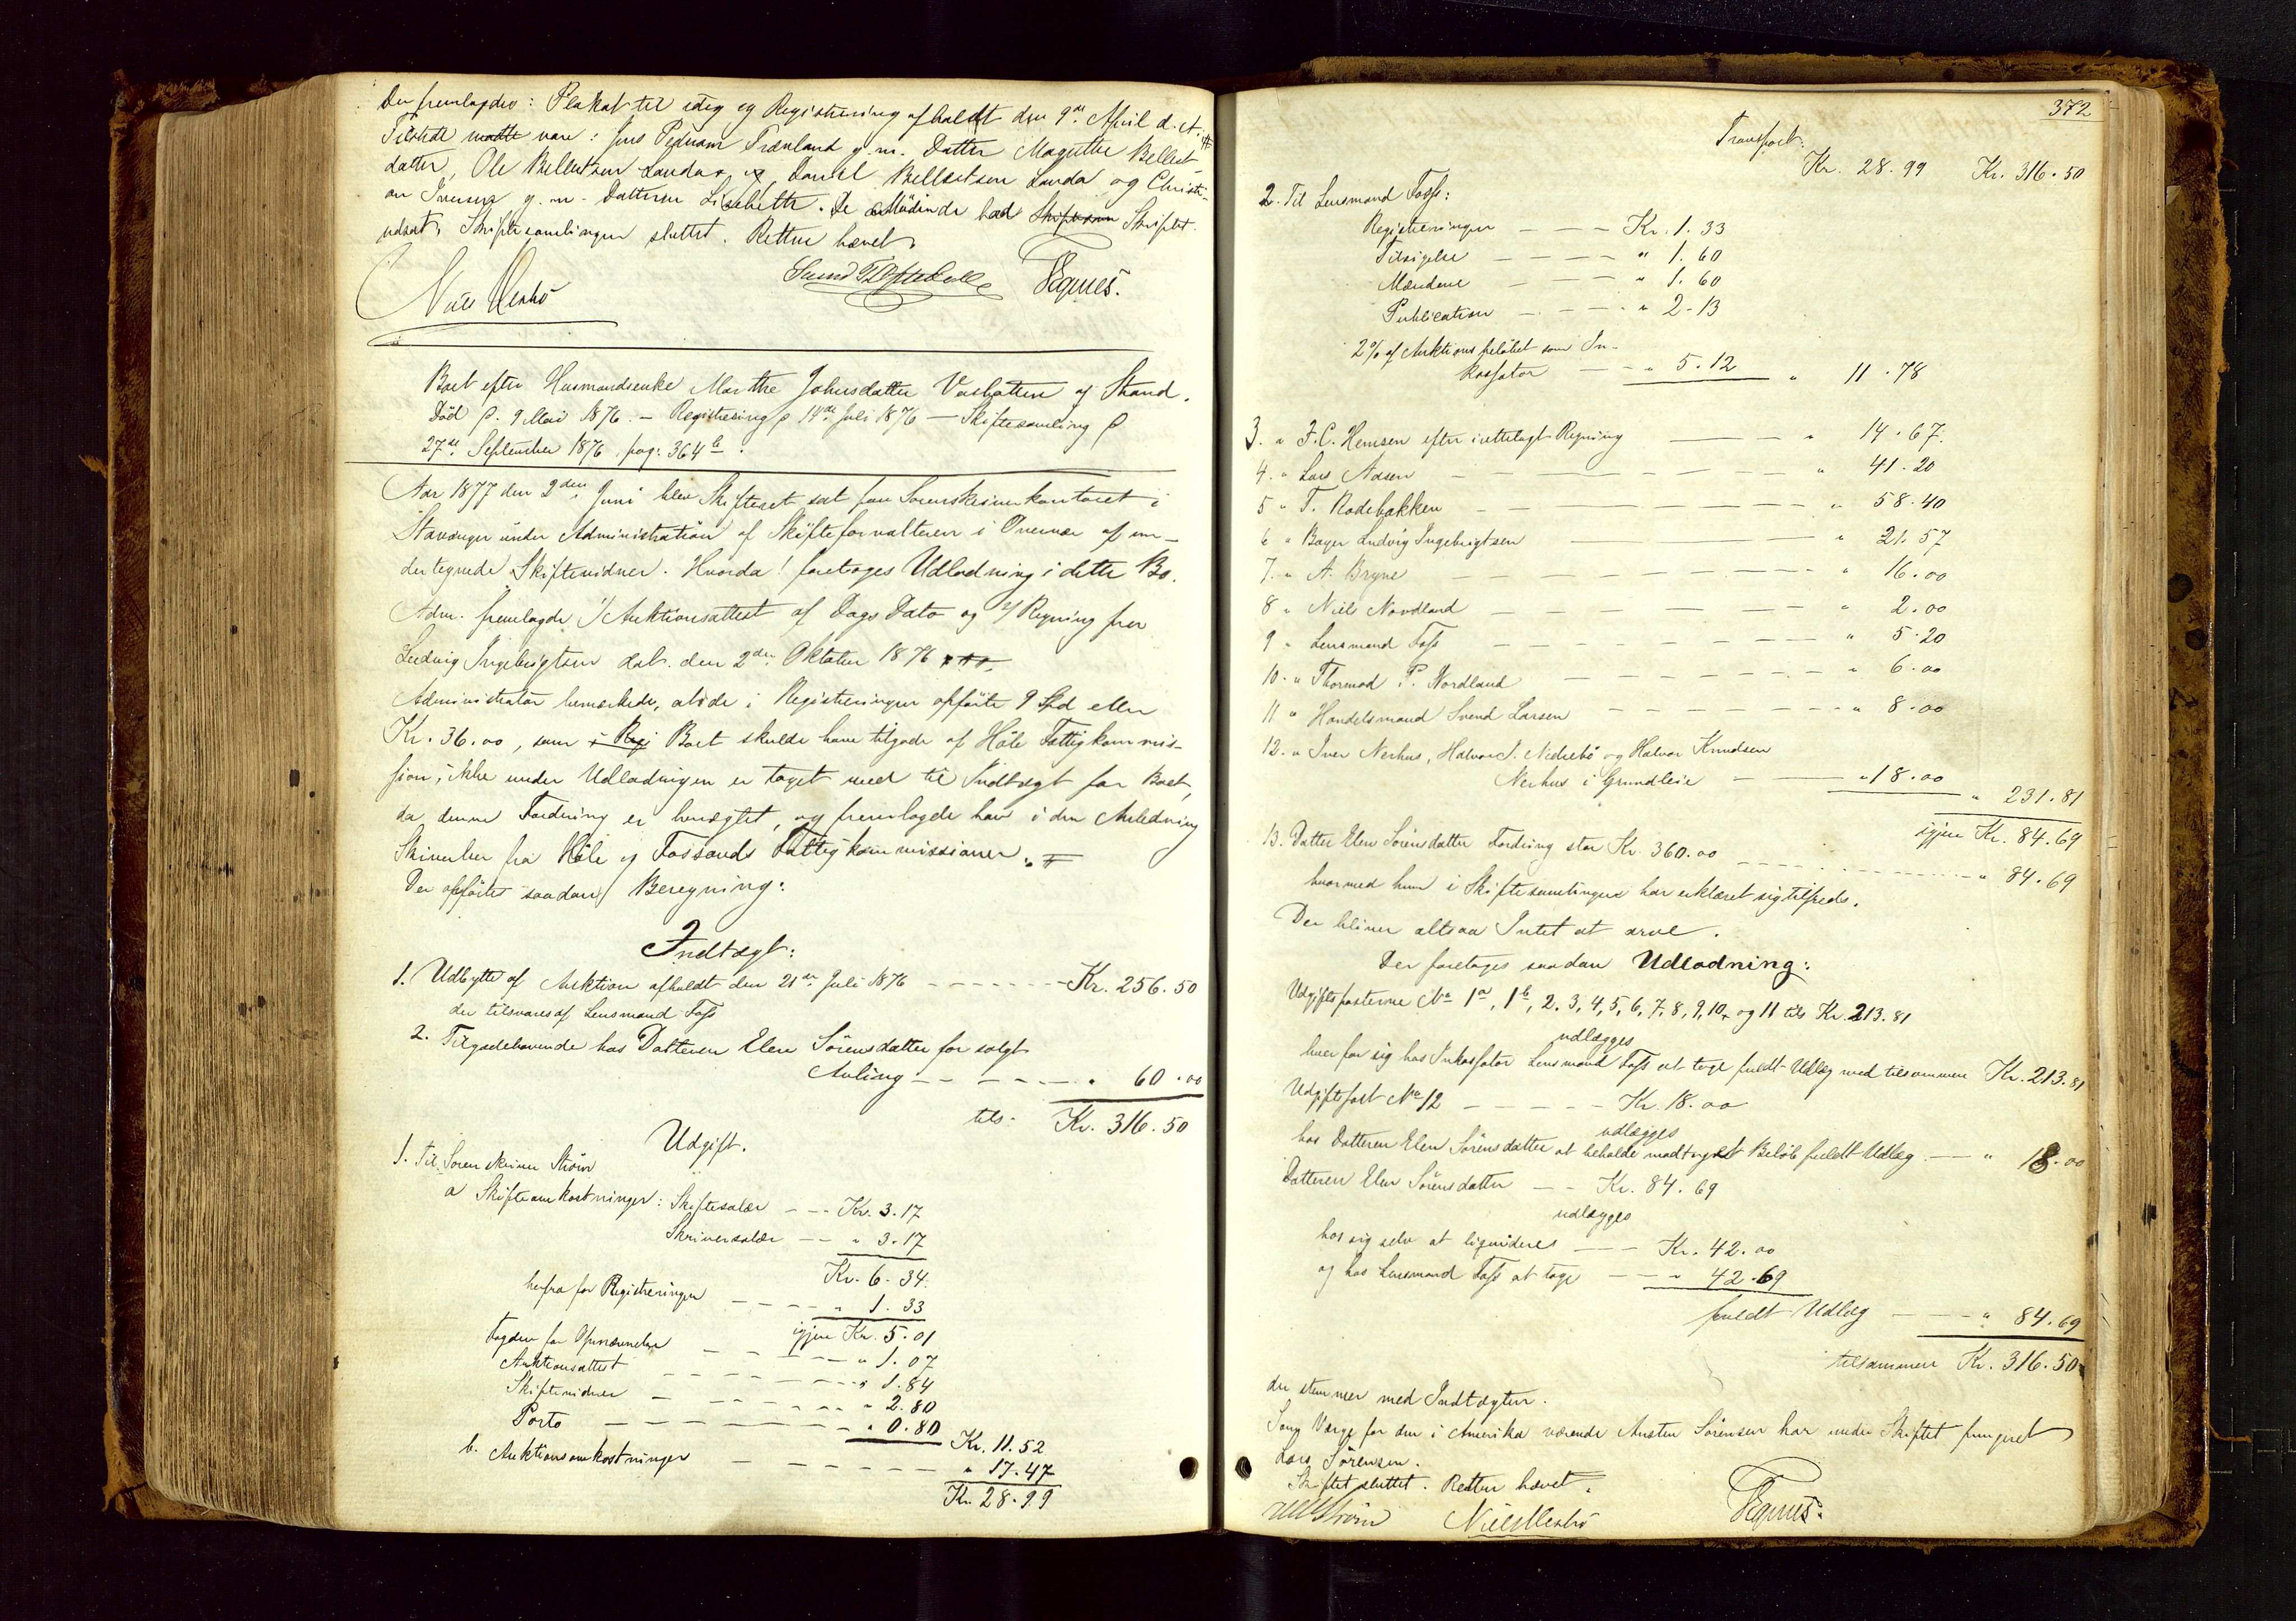 Der fremlagdes: Plakat til idag og Registrering afholdt den 9de April d. A.
Tilstede var: Jens Pedersen g. m. Datter Magrethe Bellest
datter, Ole Bellestsen Landa, Daniel Bellestsen Landa og Christi-
an Iversen g. m. Datteren Lisebette. De Mödende bad Skiftet
udsat. Skiftesamlingen sluttet. Retten hævet.
Niels Nesbö
Boet efter Husmandsenke Marthe Johnsdatter Vasbotten af Strand.
Död d. 9 Mai 1876. — Registrering d. 14de Juli 1876 — Skiftesamling d
27de September 1876, pag: 364b.
Aar 1877 den 2den Juni blev Skifteret sat paa Sorenskriverkontoret i
Stavanger under Administration af Skifteforvalteren i Overvær af un-
dertegnede Skiftevidner. Hvorda! foretoges Udlodning i dette Bo.
Adm. fremlagde 1/ Auktionsattest af Dags Dato og 2/ Regning fra
Ludvig Ingebrigtsen dat. den 2den Oktober 1876
Administrator bemærkede, at de i Registreringen opförte 9 Spd eller
Kr. 36.00, som Boet skulde have tilgode af Höle Fattigkommis-
sion, ikke under Udlodningen er taget med til Indtægt for Boet,
da denne Fordring er benægtet, og fremlagde han i den Anledning
Skrivelser fra Höle og Fossands Fattigkommissioner.
Der opförtes saadan Beregning:
Indtægt:
1. Udbytte af Auktion afholdt den 21de Juli 1876 - - - Kr. 256.50
der tilsvares af Lensmand Foss
2. Tilgodehavende hos Datteren Elen Sörensdatter for solgt
Avling - - - " 60.00
tils: Kr. 316.50
Udgift.
1. Til Sorenskriver Ström
a Skifteomkostninger: Skiftesalær - - Kr. 3.17
Skriversalær - - " 3.17
Kr. 6.34.
herfra for Registreringen - - - " 1.33
igjen Kr. 5.01
- - - " 1.07
Auktionsattest - - - " 1.84
Skiftevidner - - - " 2.80
Porto - - - " 0.80
Kr. 11.52
b. Auktionsomkostninger - - - " 17.47
Kr. 28.99
372
Transport:
Kr. 28.99 Kr. 316.50
2. Til Lensmand Foss:
Registreringen - - - Kr. 1.33
Tilsigelse - - - " 1.60
Mændene - - - " 1.60
Publication - - - " 2.13
2% af Auktionsbelöbet som In-
kassator - - " 5.12 " 11.78
3. " F. C. Hemsen efter irettelagt Regning - - - " 14.67.
4. " Lars Aasen - - - " 41.20
5 " T. Rodebakken - - - " 58.40
6 " Bager Ludvig Ingebrigtsen - - - " 21.57
7. " A. Bryne - - - " 16.00
8 " Niels Nordland - - - " 2.00
9 " Lensmand Foss - - - " 5.20
10. " Thormod P. Nordland - - - " 6.00
11 " Handelsmand Svend Larsen - - - " 8.00
12. " Iver Nerhus, Halvor J. Nedrebö og Halvor Knudsen
Nerhus i Grundleie - - - " 18.00 " 231.81
igjen Kr. 84.69
13. Datter Elen Sörensdatter Fordring stor Kr. 360.00 - - - " 84.69
hvormed hun i Skiftesamlingen har erklæret sig tilfreds.
Der bliver altsaa Intet at arve.
Der foretages saadan Udlodning:
Udgiftsposterne No 1a, 1b, 2, 3, 4, 5, 6, 7, 8, 9, 10, og 11 tils Kr. 213.81
udlægges
hver for sig hos Inkassator Lensmand Foss at tage fuldt Udlæg med tilsammen Kr. 213.81
Udgiftspost No 12 - - - Kr. 18.00
udlægges
hos Datteren Elen Sörensdatter at beholde modtaget Belöb fuldt Udlæg - " 18.00
Datteren Elen Sörensdatter - - Kr. 84.69
udlægges
hos sig selv at liquideres - - Kr. 42.00
og hos Lensmand Foss at tage - - " 42.69
fuldt Udlæg - - " 84.69
tilsammen Kr. 316.50
der stemmer med Indtægten.
Som Værge for den i Amerika værende Austen Sörensen har under Skiftet fungeret
Lars Sörensen.
Skiftet sluttet. Retten hævet.
Ström Niels Nesbö